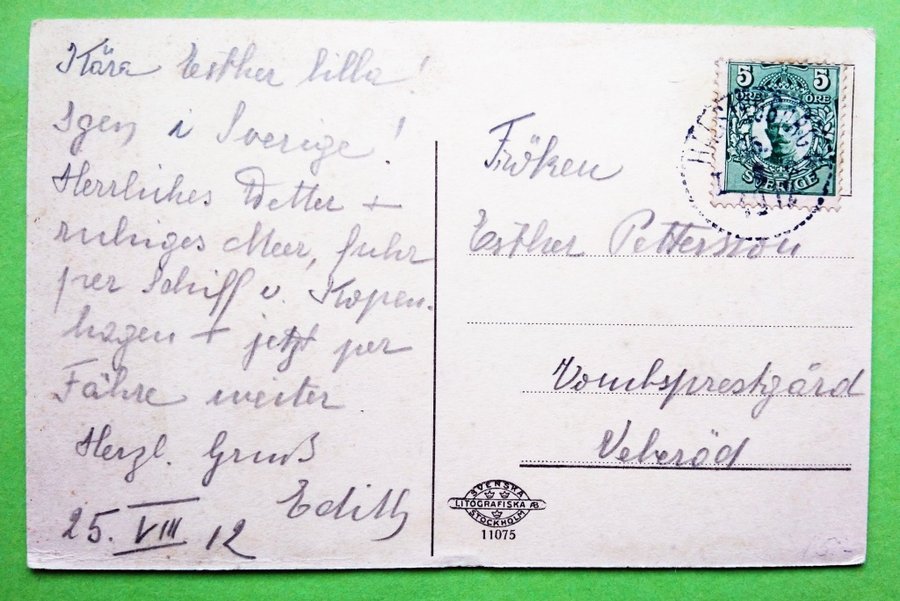 Kära Esther lilla!
Igen i Sverige!
Herrliches Wetter +
ruhiges Meer, fuhr
per Schiff v. Kopen-
hagen + jetzt per
Fähre weiter
Herzl. Gruß
Edith
25. VIII 12
5 5
ÖRE ÖRE
SVERIGE
Fröken
Esther Pettersson
Vombsprestgård
Veberöd
SVENSKA
LITOGRAFISKA AB
STOCKHOLM
11075